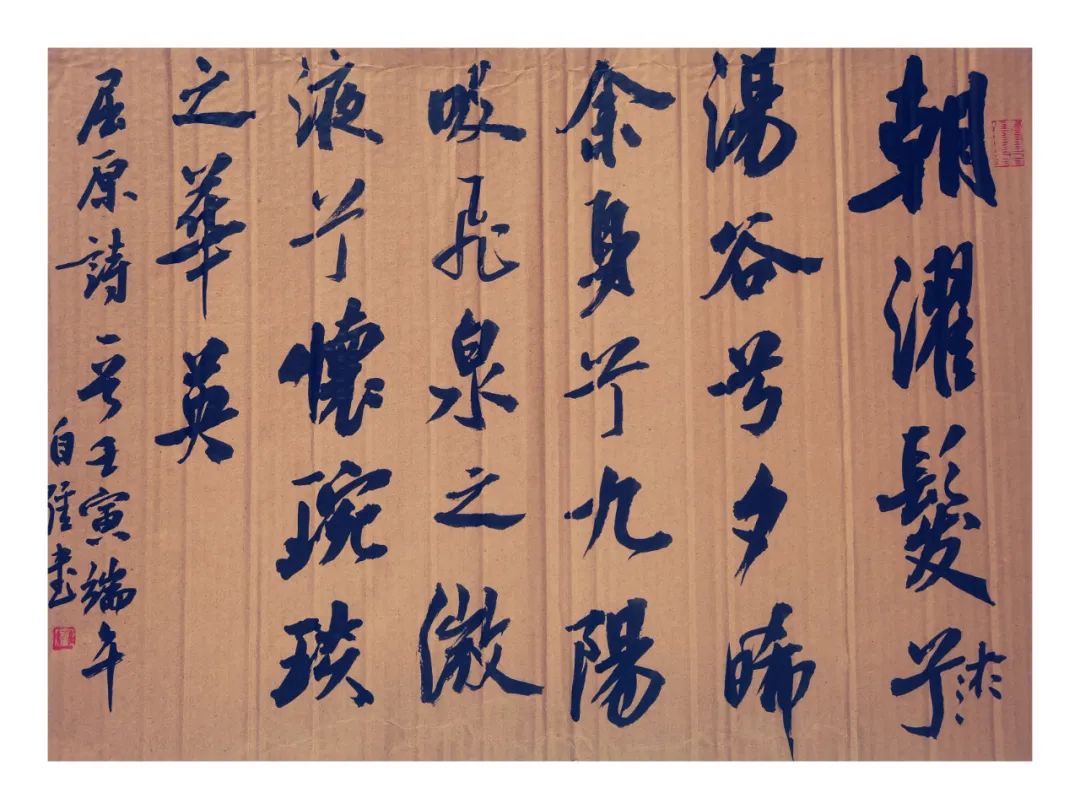 朝濯髮兮於
湯谷兮夕晞
余身兮九陽
吸飛泉之微
液兮懷琬琰
之華英
屈原詩 壬寅端午
自 書